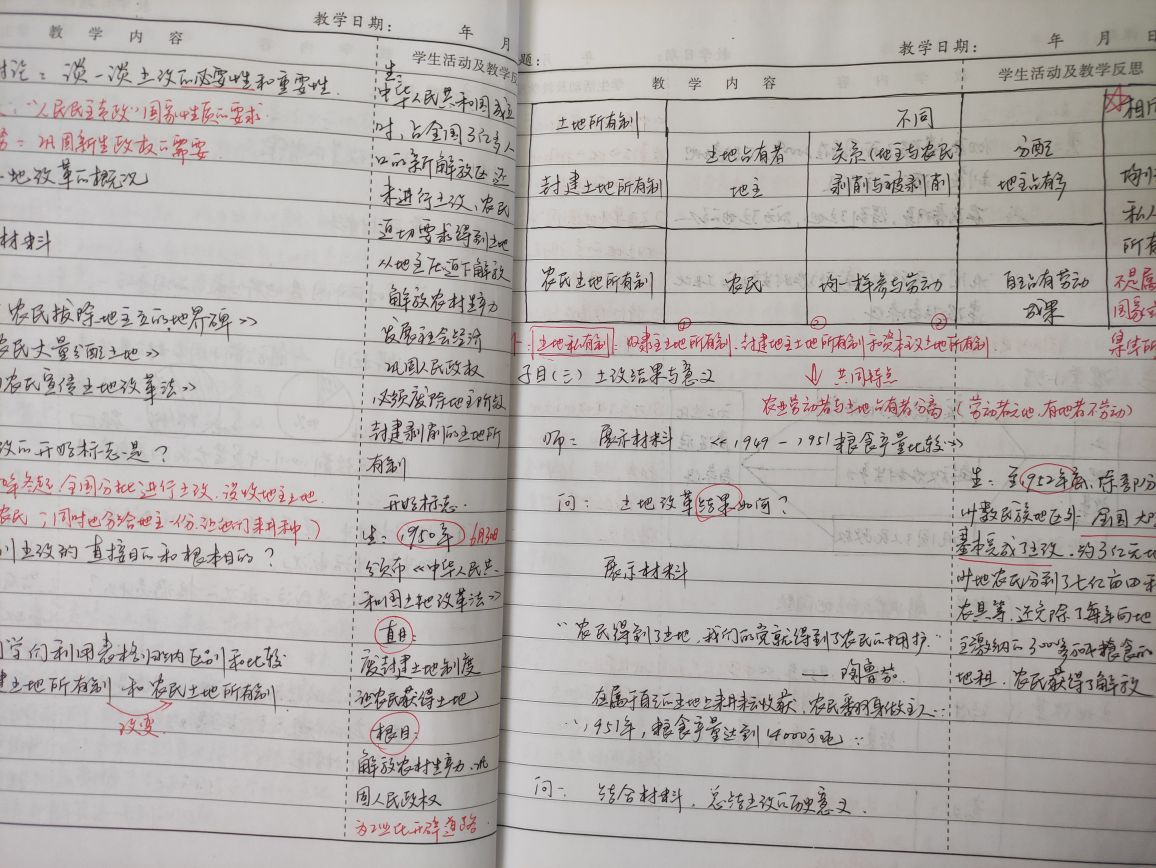 教学日期： 年 月
教 学 内 容
学生活动及教学反
讨论：谈一谈土改的必要性和重要性.
"人民民主专政"国家性质的要求
巩固新生政权的需要
地改革的概况
材料
农民拔除地主立的地界碑》
农民丈量分配土地》
农民宣传土地改革法》
改的开始标志是？
全国分批进行土改，没收地主土地
农民；同时也分给地主一份，让他们来耕种.）
土改的直接目的和根本目的？
同学们利用表格归纳区别和比较
建土地所有制 和农民土地所有制
改变
生：
中华人民共和国成立
时，占全国3亿多人
口的新解放区还
未进行土改，农民
迫切要求得到土地
从地主压迫下解放
解放农村生产力
发展社会经济
巩固人民政权
必须废除地主阶级
封建剥削的土地所
有制
开始标志.
生：1950年6月30日
颁布《中华人民共
和国土地改革法》
直目：
废封建土地制度
让农民获得土地
根目：
解放农村生产力.巩
固人民政权
为工业化开辟道路
题：
教学日期： 年 月 日
教 学 内 容
学生活动及教学反思
土地所有制 不同 相同
土地占有者 关系(地主与农民) 分配
封建土地所有制 地主 剥削与被剥削 地主占有多
均为
私人
所有
农民土地所有制 农民 均一样参与劳动 自己占有劳动
成果
不是属
国家或
集体所
① ② ③
土地私有制：奴隶主土地所有制.封建地主土地所有制和资本主义土地所有制
子目(三) 土改结果与意义 ↓ 共同特点
农业劳动者与土地占有者分离（劳动者无地，有地者不劳动）
师：展示材料 《1949－1951粮食产量比较》
问：土地改革结果如何？
展示材料
"农民得到了土地，我们的党就得到了农民的拥护.
—— 陶鲁笳.
在属于自己的土地上来耕耘收获，农民翻身做主人…
1951年，粮食产量达到14000万吨
问：结合材料，总结土改的历史意义.
生：至1952年底，除部分
少数民族地区外 全国大陆
基本完成了土改，约3亿无地
少地农民分到了七亿亩田和
农具等，还免除了每年向地
主缴纳的300多亿斤粮食的
地租，农民获得了解放